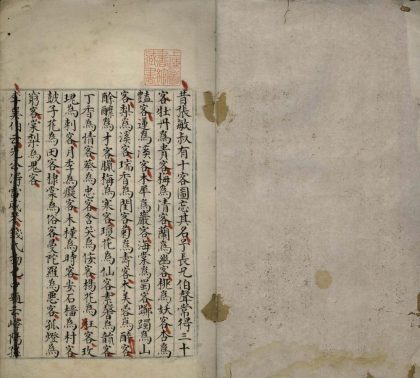 昔張敏叔有十客圖忘其名予長兄伯聲常得三十
客牡丹為貴客梅為清客蘭為幽客桃為妖客杏為
豔客蓮為溪客木犀為巖客海棠為蜀客躑躅為山
客梨為淡客瑞香為閨客菊為壽客木芙蓉為醉客
酴醾為才客臘梅為寒客瓊花為仙客素馨為韻客
丁香為情客葵為忠客含笑為佞客楊花為狂客玫
瑰為刺客月季為癡客木槿為時客安石榴為村客
鼓子花為田客棣棠為俗客曼陀羅為惡客孤燈為
窮客棠梨為鬼客